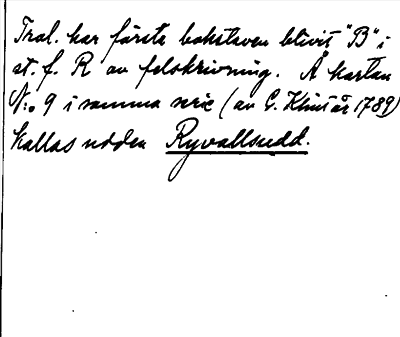 Trol. har första bokstaven blivit "B" i
st. f. R av felskrivning. Å kartan
N:o 9 i samma serie (av G. Klint år 1789)
kallas udden Ryvallsudd.